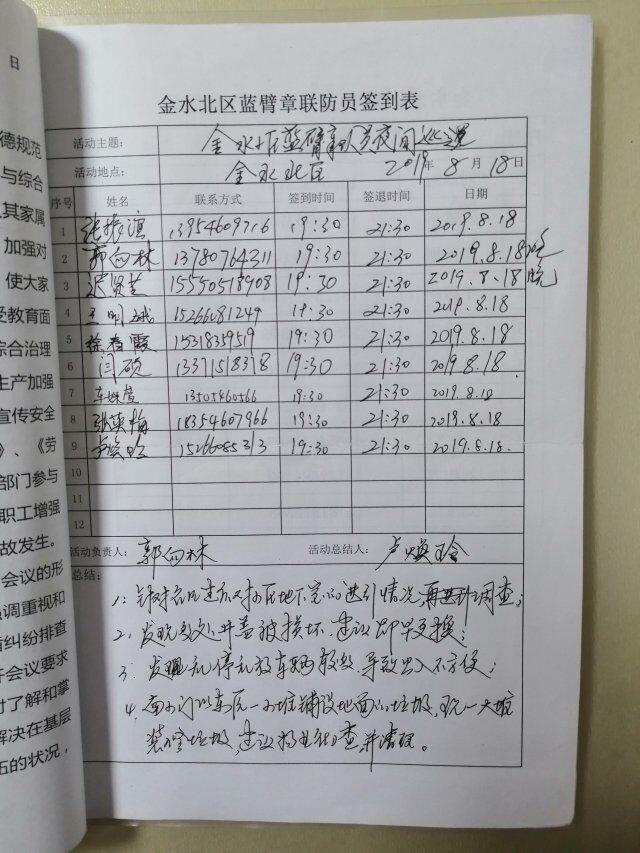 日
德规范
与综合
其家属
加强对
使大家
受教育面
综合治理
生产加强
宣传安全
》、《劳
部门参与
职工增强
故发生。
会议的形
强调重视和
纠纷排查
开会议要求
对了解和掌
解决在基层
伍的状况，
金水北区蓝臂章联防员签到表
活动主题： 金水北区蓝臂章队员夜间巡逻
活动地点： 金水北区 2019年 8 月 18 日
序号 姓名 联系方式 签到时间 签退时间 日期
1 张振滨 13954609716 19:30 21:30 2019.8.18
2 郭向林 13780764311 19:30 21:30 2019.8.18 晚
3 迟贤芝 15550518908 19:30 21:30 2019.8.18 晚
4 王明 15266081249 19:30 21:30 2019.8.18
5 徐春霞 15318359519 19:30 21:30 2019.8.18
6 闫硕 13371518378 19:30 21:30 2019.8.18
7 13505460566 19:30 21:30 2019.8.18
8 张英梅 18354607966 19:30 21:30 2019.8.18
9 卢焕玲 15266085313 19:30 21:30 2019.8.18.
10
11
12
活动负责人： 郭向林 活动总结人： 卢焕玲
总结：
1: 针对 情况,再进行调查;
2、发现多处井盖被损坏,建议即早更换;
3、发现乱停乱放车辆较多,导致出入不方便;
4、南小门以东 一小堆铺设地面的垃圾,现一大堆
装修垃圾,建议物业 查,并清理。